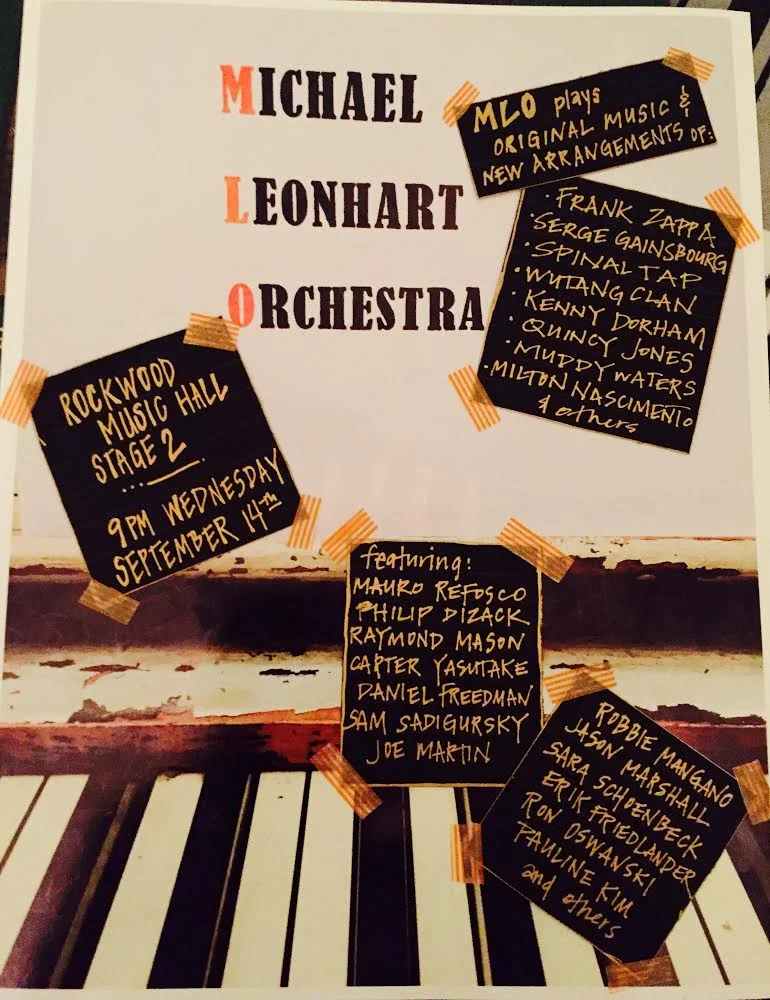 MICHAEL
LEONHART
ORCHESTRA
MLO plays
ORIGINAL MUSIC &
NEW ARRANGEMENTS OF:
· FRANK ZAPPA
· SERGE GAINSBOURG
· SPINAL TAP
· WUTANG CLAN
· KENNY DORHAM
· QUINCY JONES
· MUDDY WATERS
· MILTON NASCIMENTO
& others
ROCKWOOD
MUSIC HALL
STAGE 2
9PM WEDNESDAY
SEPTEMBER 14th
featuring:
MAURO REFOSCO
PHILIP DIZACK
RAYMOND MASON
CARTER YASUTAKE
DANIEL FREEDMAN
SAM SADIGURSKY
JOE MARTIN
ROBBIE MANGANO
JASON MARSHALL
SARA SCHOENBECK
ERIK FRIEDLANDER
RON OSWANSKI
PAULINE KIM
and others